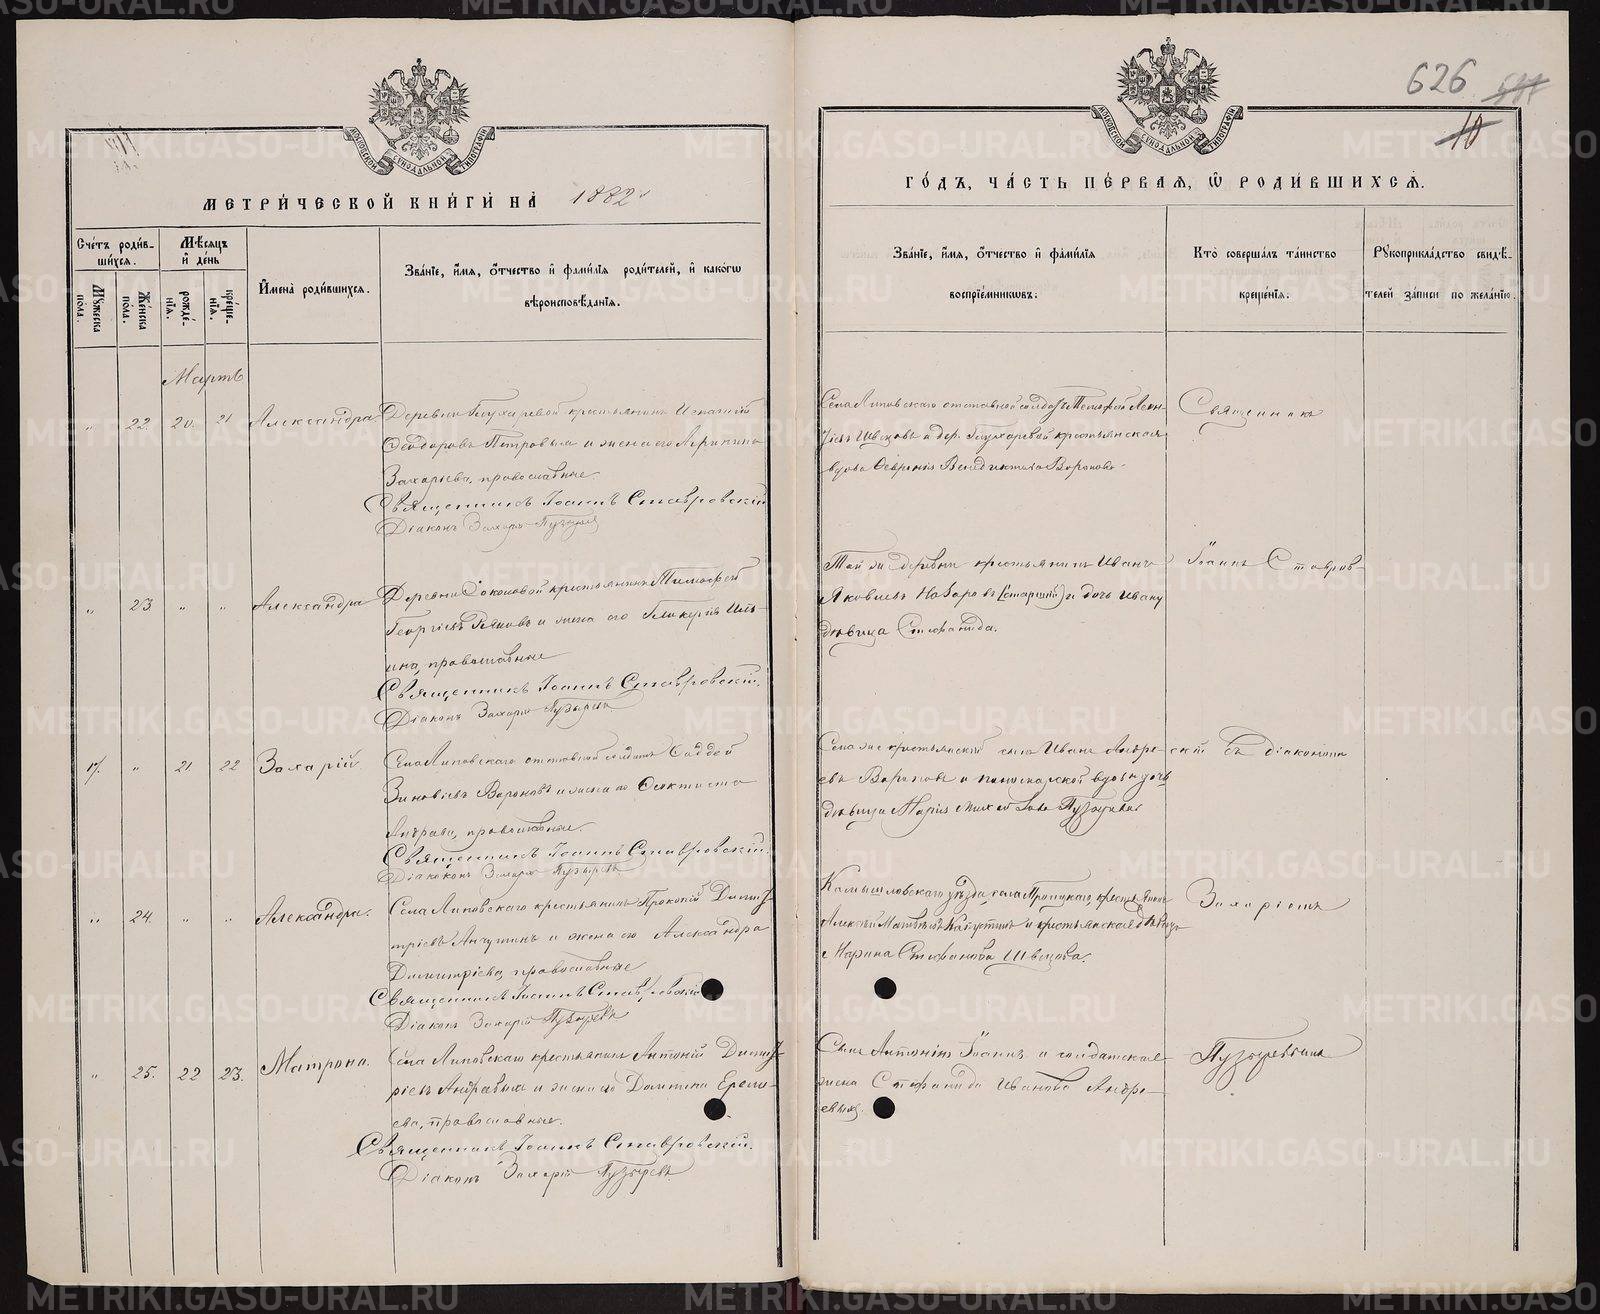 626
10
МЕТРИ́ЧЕСКОЙ КНИ́ГИ НА̀ 1882
ГО́ДЪ, ЧА́СТЬ ПЕ́РВАЯ, Ѡ РОДИ́ВШИХСЯ.
Сче́тъ роди́в-
шихся.
Му́жеска пола.
Же́нска по́ла.
Мѣ́сяцъ
и҆ де́нь
рожде́-
нїя.
креще́-
нїя.
И҆мена̀ роди́вшихся.
Зва́нїе, и҆́мя, ѻ҆́тчество и҆ фами́лїя роди́телей, и҆ како́гѡ
вѣроисповѣ́данїя.
Зва́нїе, и҆́мя, ѻ҆́тчество и҆ фами́лїя
воспрїе́мникѡвъ.
Кто̀ соверша́лъ та́инство
креще́нїя.
Рꙋкоприкла́дство свидѣ́-
телей за́писи по жела́нїю.
Мартъ
„ 22. 20. 21 Александра
Деревни Глухаревой крестьянинъ Игнатій
Ѳеодоровъ Петровыхъ и жена его
Захарьева, православные.
Священникъ Іоаннъ Ставровскій
Діаконъ Захарій Пузыревъ
Села Липовскаго отставной солдатъ Тимофей Леон-
Швецовъ и дер. Глухаревой крестьянская
вдова Февронія Венедиктова Воронова.
Священникъ
„ 23 „ „ Александра
Деревни Соколовой крестьянинъ Тимофей
Георгіевъ и жена его Гликерія Иль-
ина, православные
Священникъ Іоаннъ Ставровскій.
Діаконъ Захарій Пузыревъ
Той же деревни крестьянинъ Иванъ
Яковлевъ Назаровъ (старшій) и дочь Ивана
дѣвица Стефанида.
Іоаннъ Ставров-
17. „ 21. 22 Захарій
Села Липовскаго отставной солдатъ Фаддей
Зиновіевъ Вороновъ и жена его Ѳеоктиста
православные.
Священникъ Іоаннъ Ставровскій.
Діаконъ Захарій Пузыревъ
Села же крестьянскій сынъ Иванъ Андре-
евъ Вороновъ и пономарской вдовы дочь
дѣвица Марія Михайлова Пузырева
скій съ діакономъ
„ 24. „ „ Александра.
Села Липовскаго крестьянинъ Прокопій Дими-
тріевъ и жена его Александра
Димитріева, православные
Священникъ Іоаннъ Ставровскій
Діаконъ Захарій Пузыревъ
Камышловскаго уѣзда, села Троицкаго, крестьянинъ
Алексѣй Матвѣевъ Капустинъ и крестьянская дѣвица
Марина Стефанова Швецова.
Захаріемъ
„ 25. 22 23. Матрона.
Села Липовскаго крестьянинъ Антоній Димит-
ріевъ Андреевыхъ и жена его Домника Ереме-
ева, православные.
Священникъ Іоаннъ Ставровскій.
Діаконъ Захарій Пузыревъ.
Сынъ Антоніевъ Іоаннъ и солдатская
жена Стефанида Иванова Андре-
евыхъ.
Пузыревымъ
METRIKI.GASO-URAL.RU